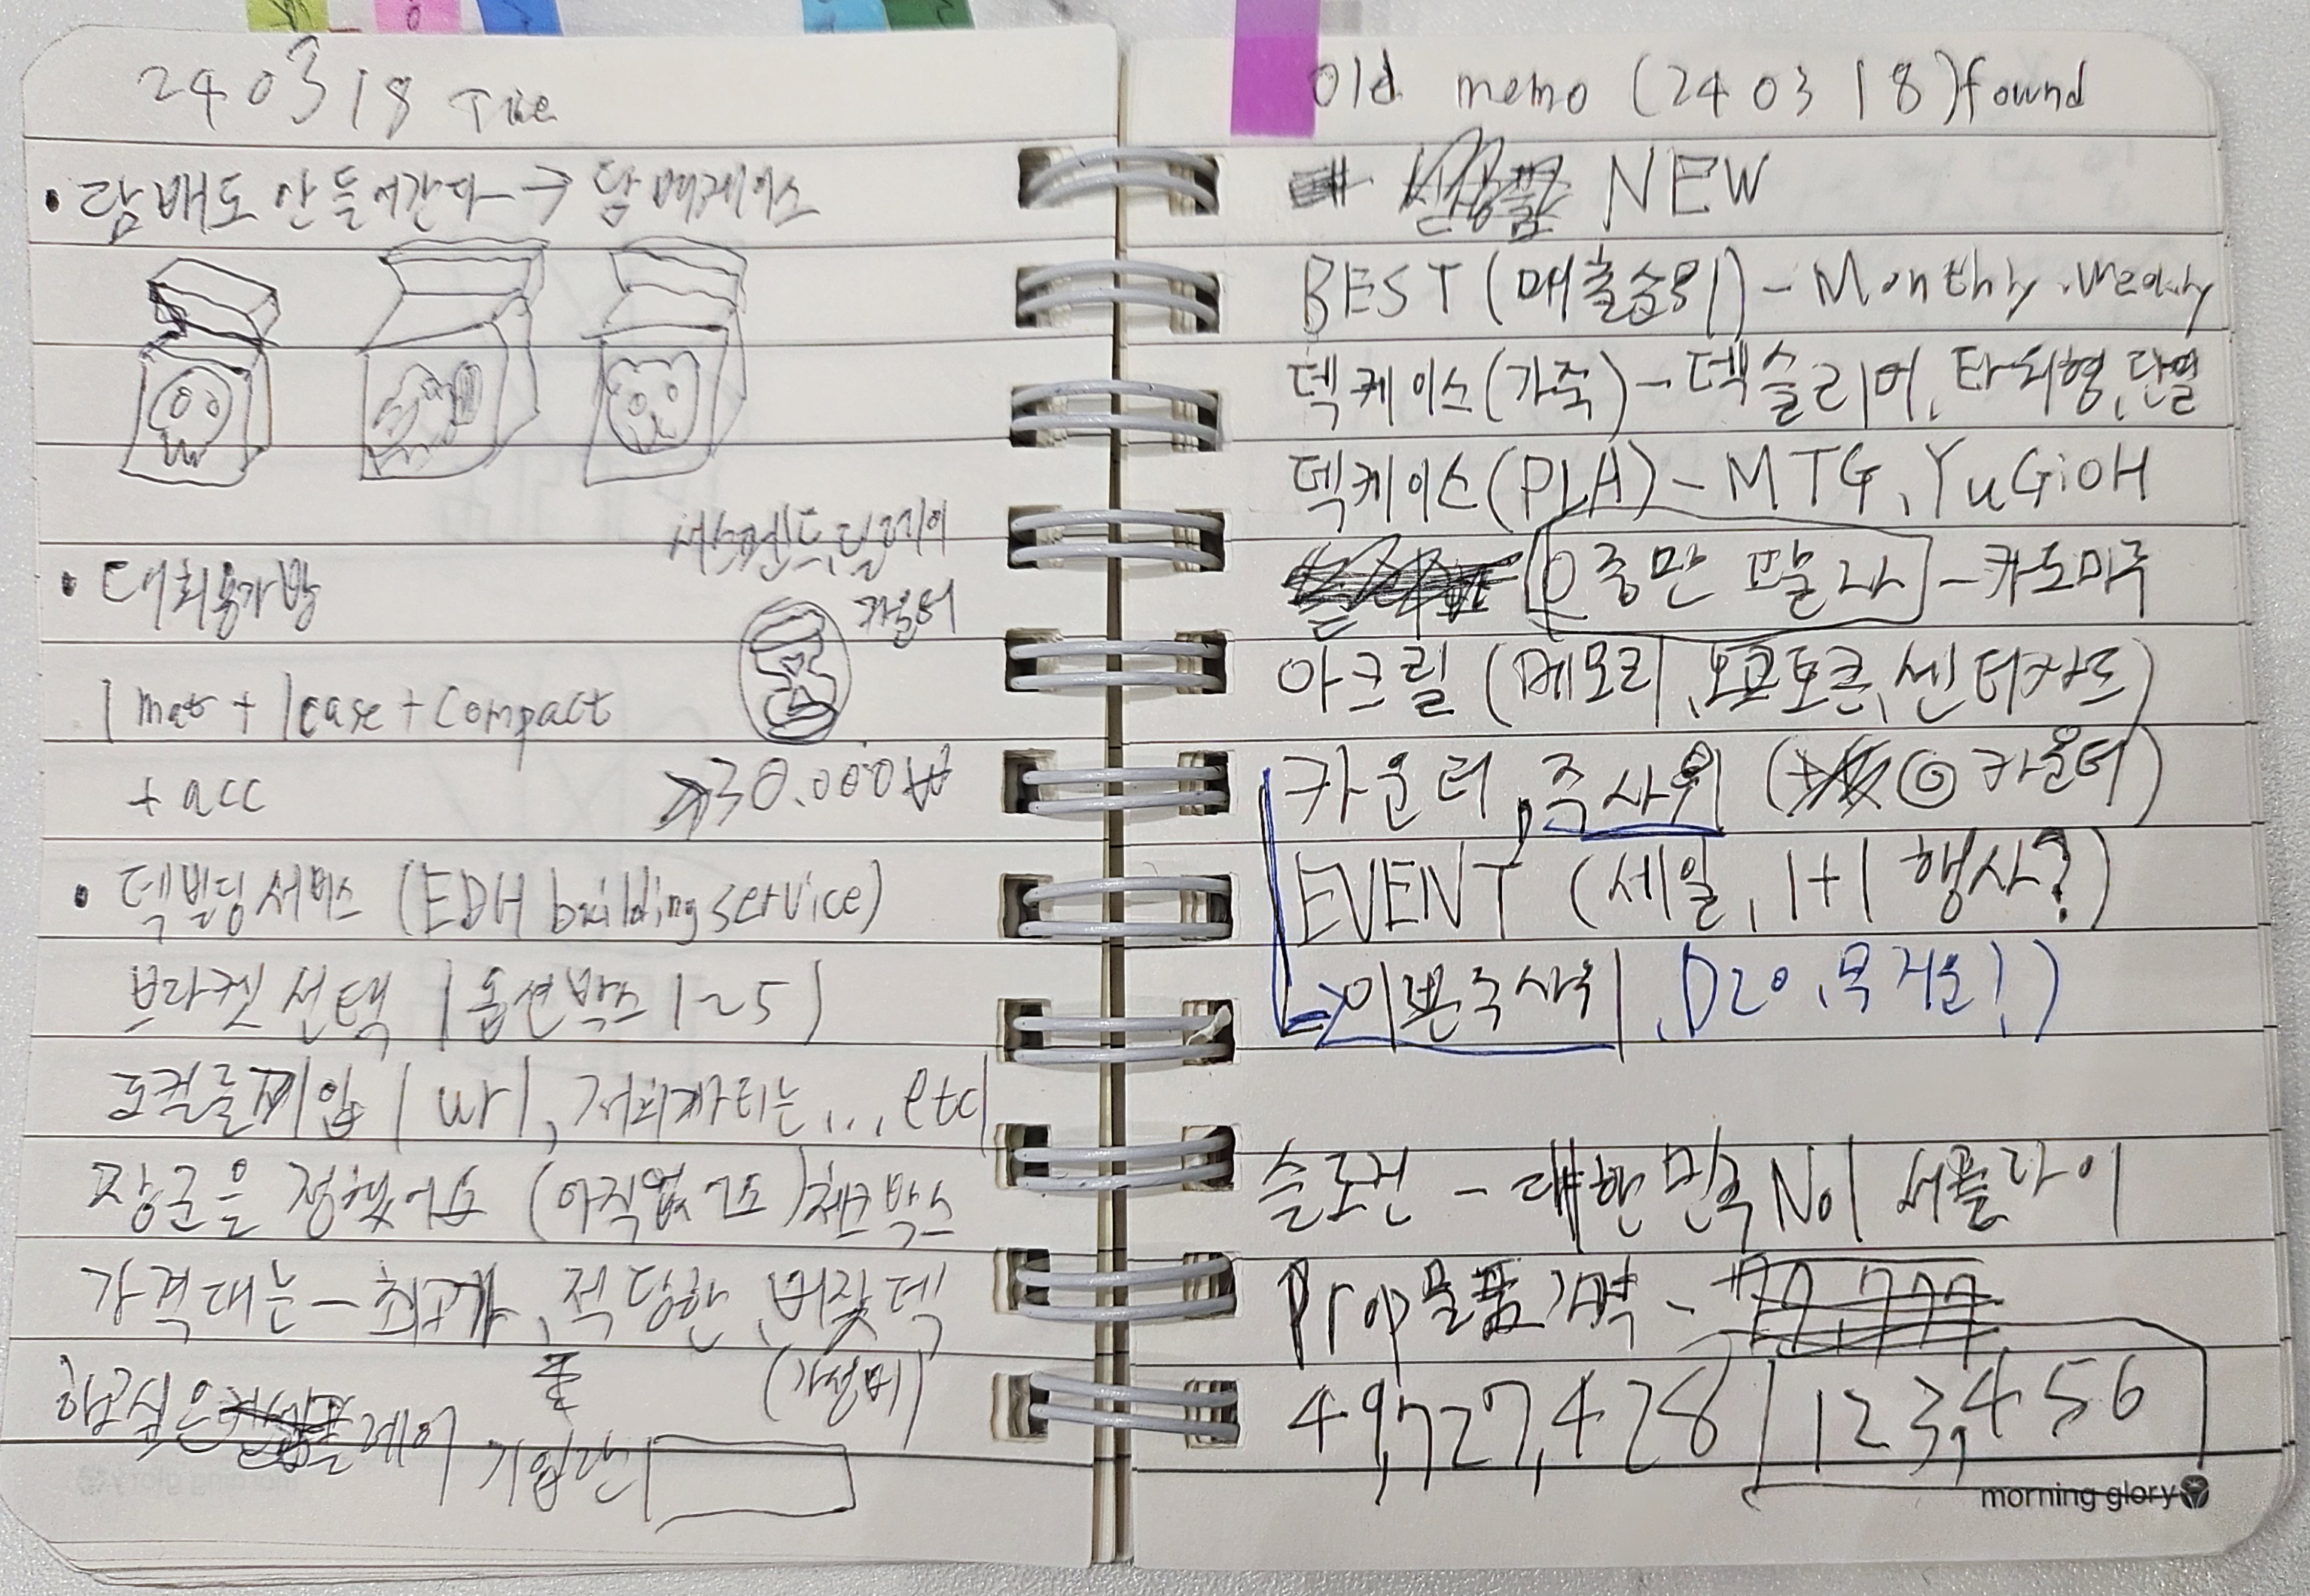 240318 Tue
• 담배도 안들어간다 → 담배케이스
서스펜드, 딜레이
카운터
• 대회용가방
1 mat + 1case + compact
+ acc
→30.000₩
• 덱빌딩서비스 (EDH building service)
브라켓 선택 | 옵션박스 1~5 |
로컬룰기입 | url, 저희파티는... etc |
장군을 정했어요 (아직없어요) 체크박스
가격대는 - 최고가, 적당한, 버짓덱
(가성비)
하고싶은 플레이 기입란
old memo (240318) found
NEW
BEST (매출순위) - Monthly, weekly
덱케이스(가죽) - 덱슬리어, 타회형, 단열
덱케이스(PLA) - MTG, YuGiOH
오종만 팔라 - 카도마루
아크릴 (메모리, 토큰, 센터카드)
카운터, 주사위 (◎ 카운터)
EVENT (세일, 1+1 행사?)
→이쁜주사위, D20, 무거운!,)
슬로건 - 대한민국 No1 서플라이
Prop물품가격 -
49,727,428 | 123,456
morning glory